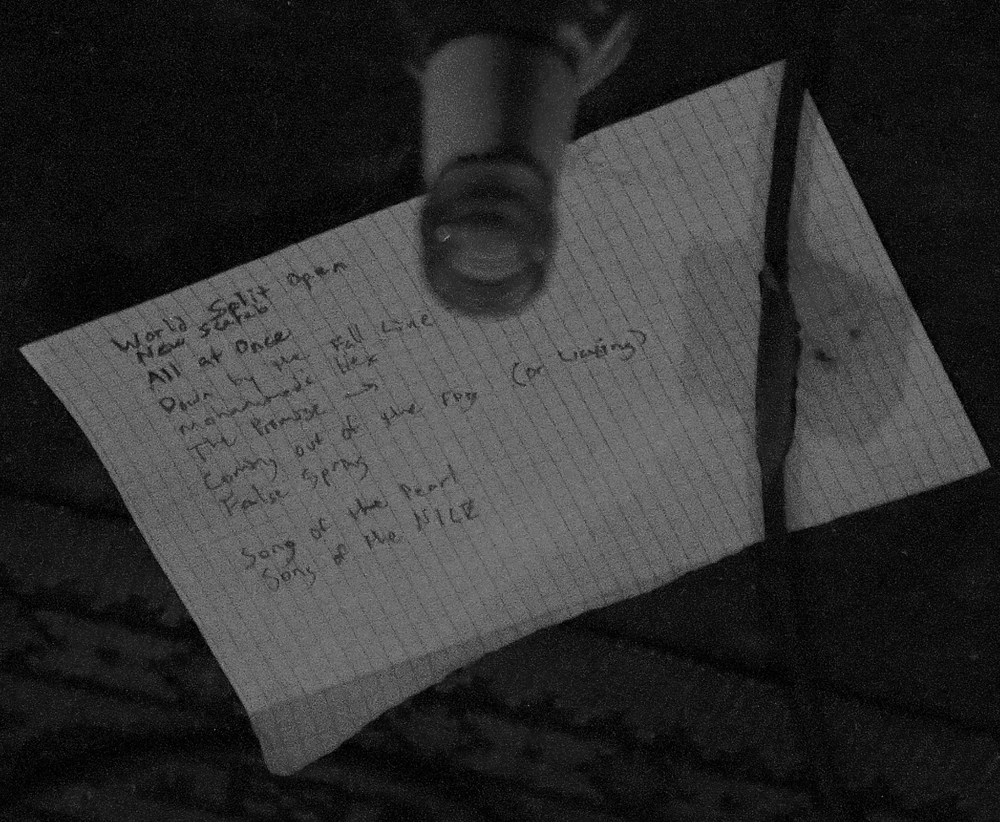 World Split Open
New Salab
All at Once
Down by the Fall Line
Mohammeds Hex
The Promise →
Coming out of the Fog (or Living)
False Spring
Song of the Pearl
Song of the NILE